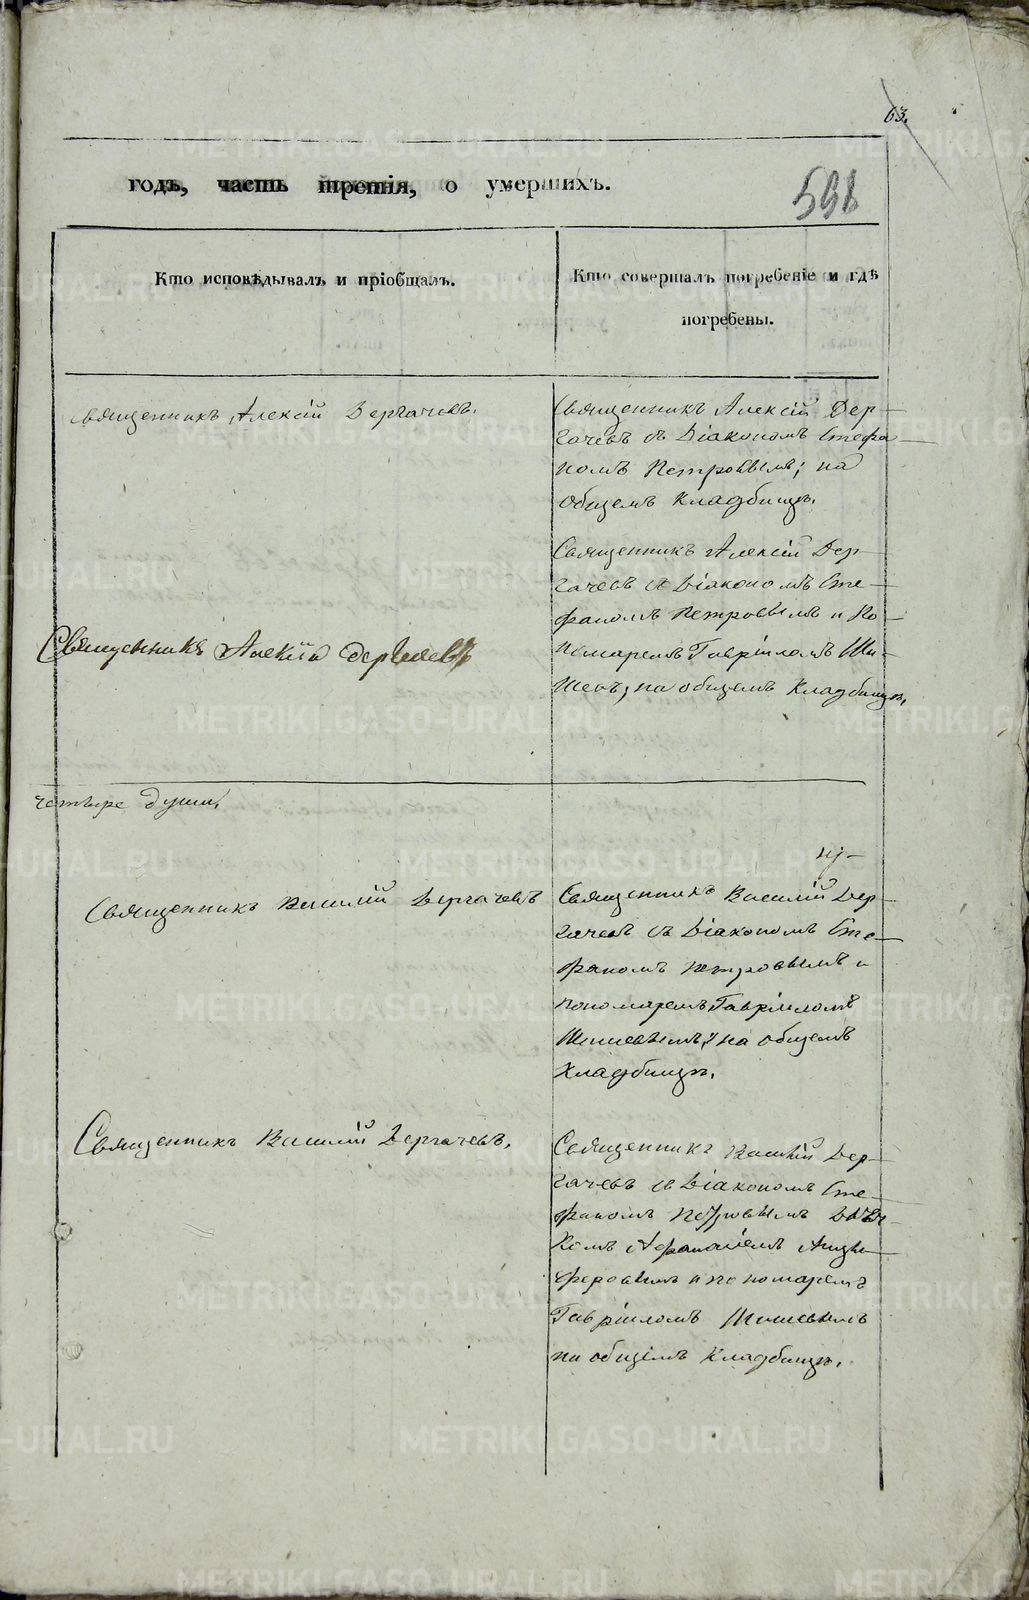 63.
годъ, часть третія, о умершихъ.
598
Кто исповѣдывалъ и пріобщалъ.
Кто совершалъ погребеніе и гдѣ
погребены.
Священникъ Алексій Дергачевъ.
Священникъ Алексій Дер-
гачевъ съ Діакономъ Стефа
номъ Петровымъ; на
общемъ кладбищѣ.
Священникъ Алексій Дер-
гачевъ съ Діакономъ Сте-
фаномъ Петровымъ и По-
номаремъ Гавріиломъ Ши-
на общемъ кладбищѣ,
Священникъ Алексій Дергачевъ
четыре души,
Священникъ Василій Дергачевъ
Священникъ Василій Дер-
гачевъ съ Діакономъ Сте-
фаномъ Петровымъ и
пономаремъ Гавріиломъ
Шишевымъ; на общемъ
кладбищѣ.
Священникъ Василій Дергачевъ.
Священникъ Василій Дер-
гачевъ съ Діакономъ Сте-
фаномъ Петровымъ Дьяч-
комъ Афанасіемъ Анци-
феровымъ и пономаремъ
Гавріиломъ Шишевымъ
на общемъ кладбищѣ.
METRIKI.GASO-URAL.RU